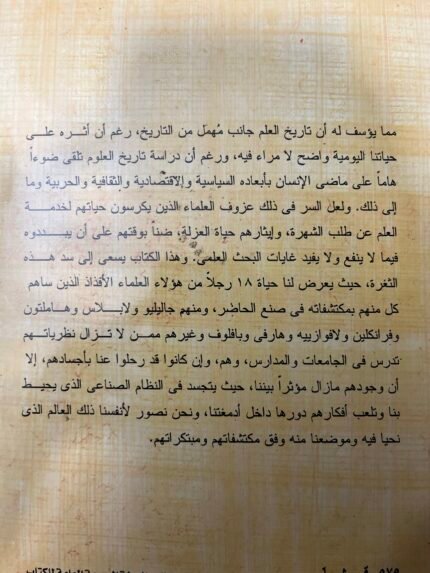 مما يؤسف له أن تاريخ العلم جانب مُهمل من التاريخ، رغم أن أثره على
حياتنا اليومية واضح لا مراء فيه، ورغم أن دراسة تاريخ العلوم تلقى ضوءاً
هاماً على ماضى الإنسان بأبعاده السياسية والاقتصادية والثقافية والحربية وما
إلى ذلك. ولعل السر فى ذلك عزوف العلماء الذين يكرسون حياتهم لخدمة
العلم عن طلب الشهرة، وإيثارهم حياة العزلة، ضناً بوقتهم على أن يبددوه
فيما لا ينفع ولا يفيد غايات البحث العلمى. وهذا الكتاب يسعى إلى سد هذه
الثغرة، حيث يعرض لنا حياة ١٨ رجلاً من هؤلاء العلماء الأفذاذ الذين ساهم
كل منهم بمكتشفاته فى صنع الحاضر، ومنهم جاليليو ولابلاس وهاملتون
وفرانكلين ولافوازييه وهارفى وبافلوف وغيرهم ممن لا تزال نظرياتهم
تدرس فى الجامعات والمدارس، وهم، وإن كانوا قد رحلوا عنا بأجسادهم، إلا
أن وجودهم مازال مؤثراً بيننا، حيث يتجسد فى النظام الصناعى الذى يحيط
بنا وتلعب أفكارهم دورها داخل أدمغتنا، ونحن نصور لأنفسنا ذلك العالم الذى
نحيا فيه وموضعنا منه وفق مكتشفاتهم ومبتكراتهم.